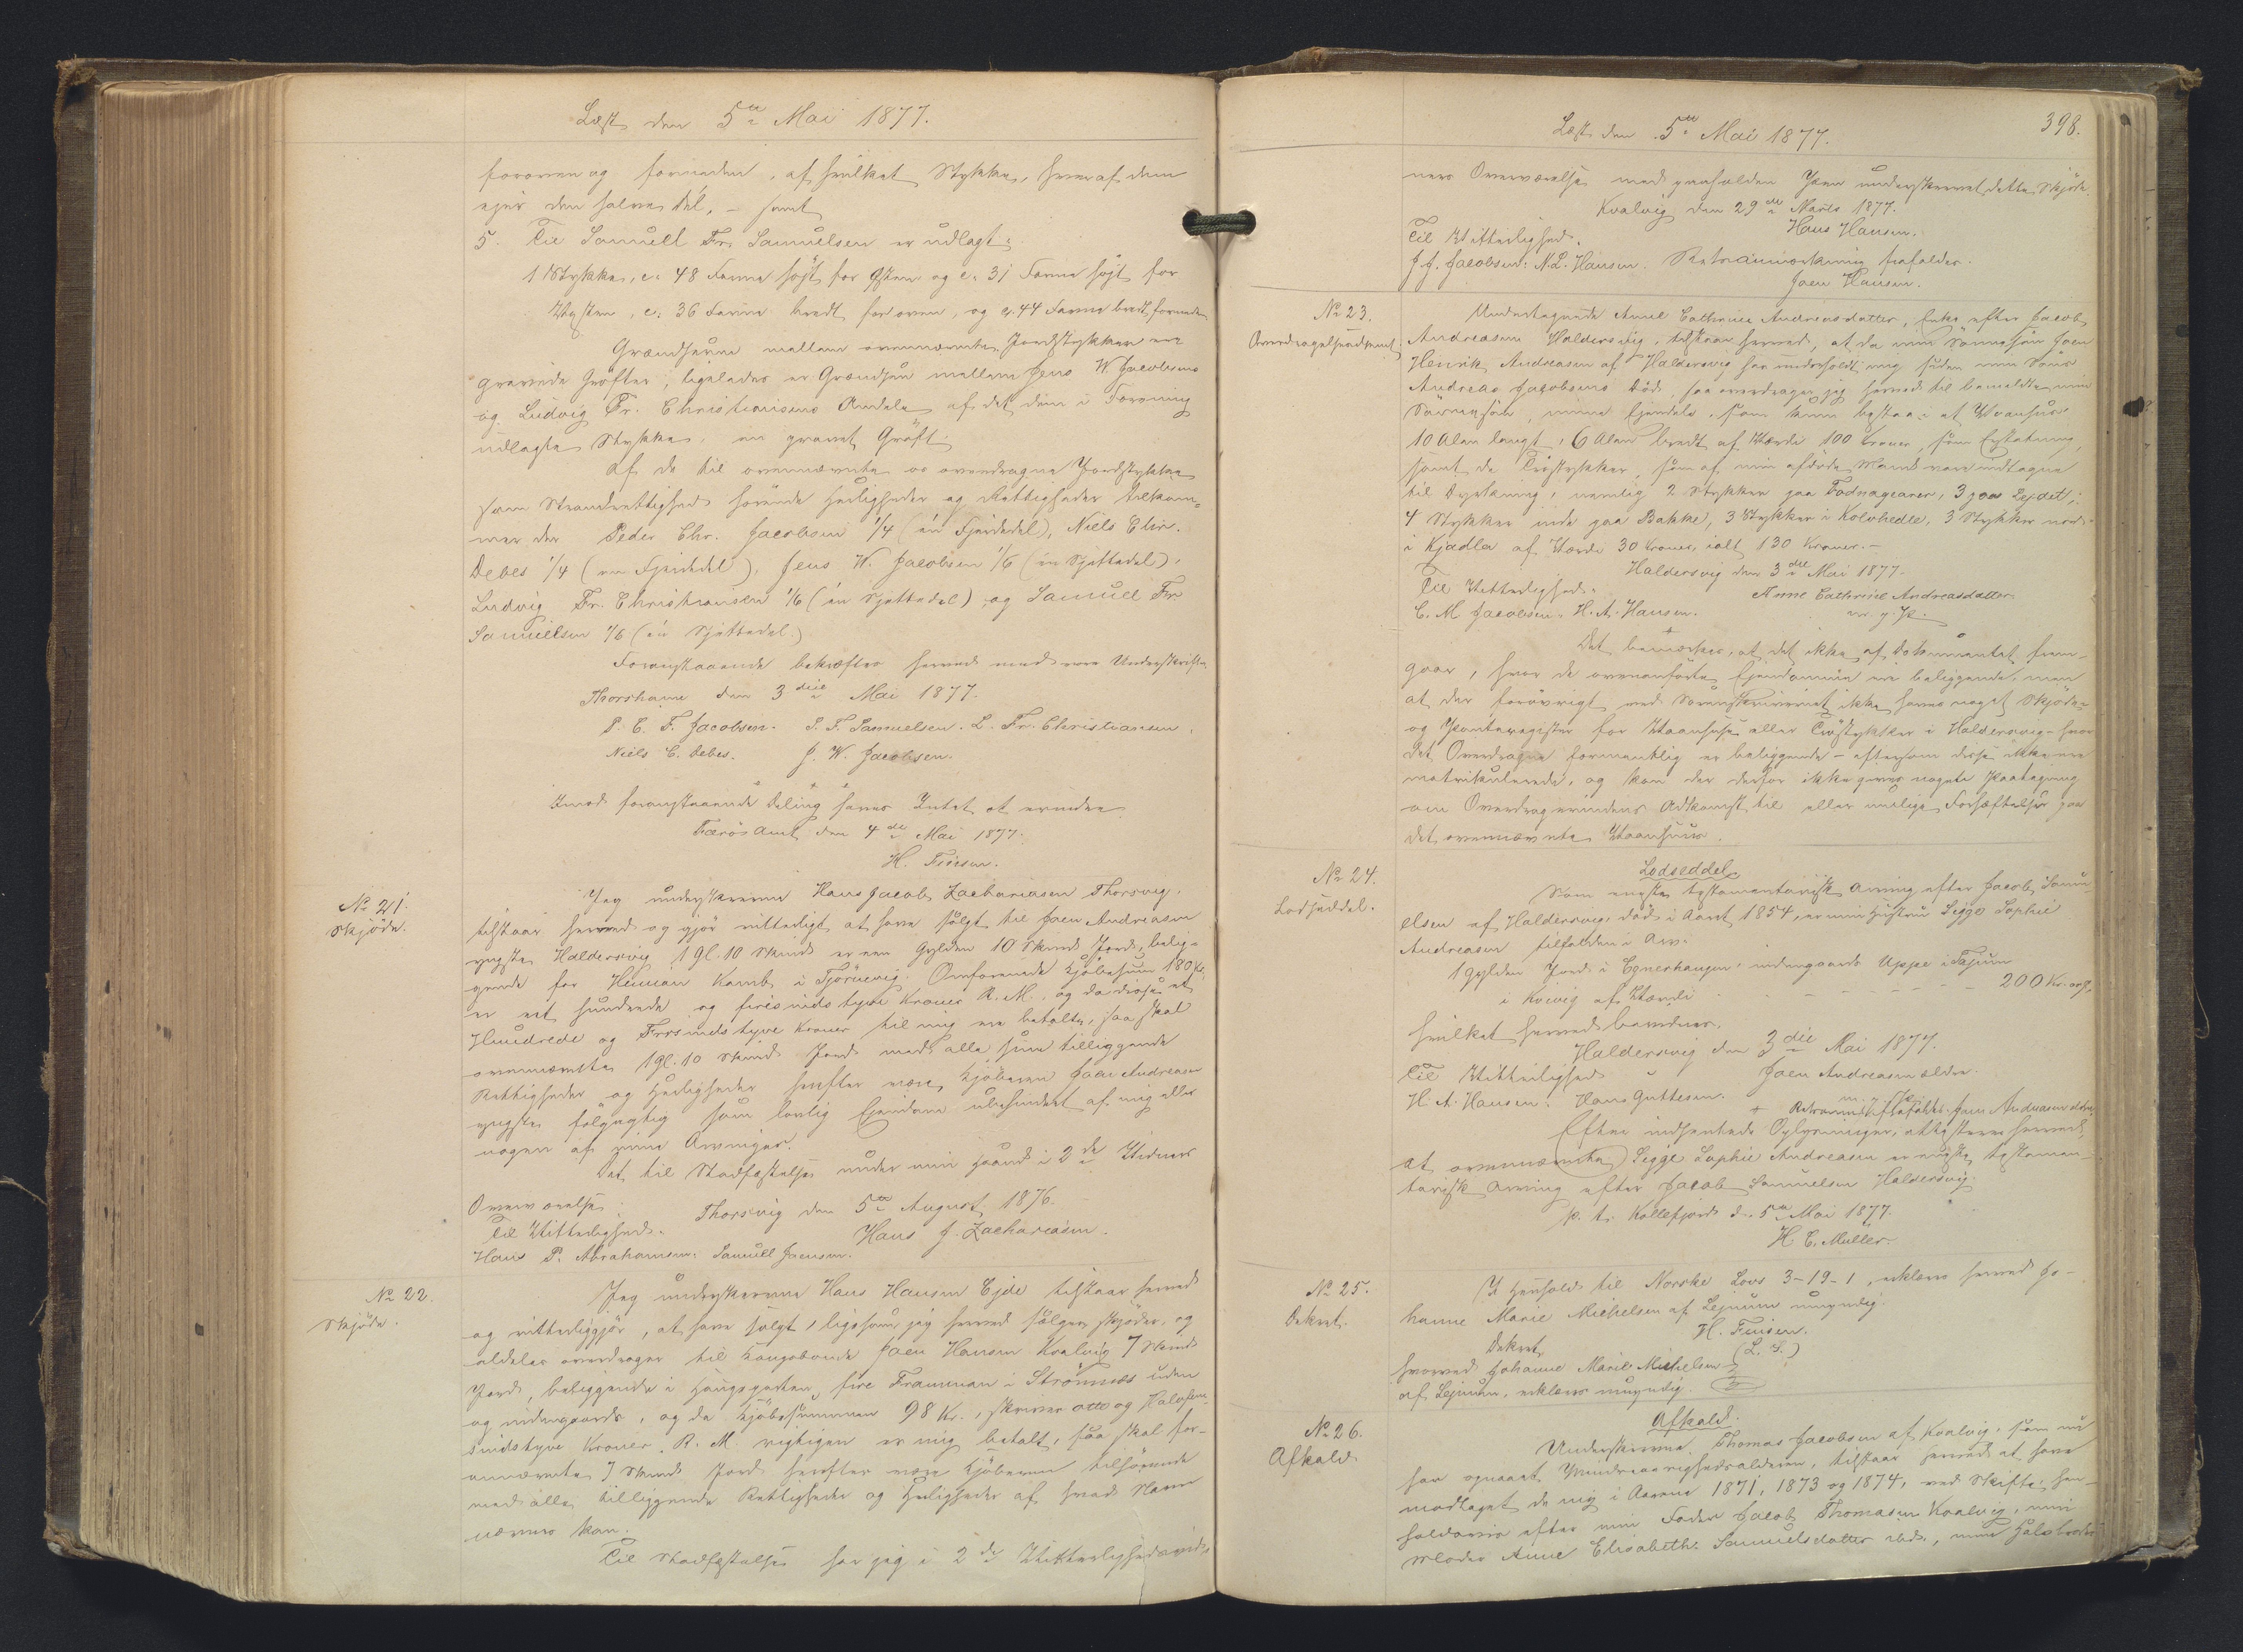 Læst den 5te Mai 1877.
foroven og forneden, af hvilket Stykke, hver af dem
ejer den halve Del, – samt
5. Til Samuell Fr. Samuelsen er udlagt:
1 Stykke, c. 48 Favne højt for Østen og c. 31 Favne højt for
Vesten, c. 36 Favne bredt for oven, og c. 44 Favne bredt forneden
Grændserne mellem ovennævnte Jordstykker ere
gravede Grøfter, ligeledes er Grændsen mellem Jens W. Jacobsens
og Ludvig Fr. Christiansens Andele af det dem i Forening
udlagte Stykke, en gravet Grøft
Af de til ovennævnte os overdragne Jordstykke
som Strandrettighed hørende Herligheder og Rettigheder tilkom-
mer der Peder Chr. Jacobsen 1/4 (én Fjerdedel), Niels Chr.
Debes 1/4 (en Fjerdedel), Jens W. Jacobsen 1/6 (én Sjettedel),
Ludvig Fr. Christiansen 1/6 (én Sjettedel) og Samuel Fr
Samuelsen 1/6 (én Sjettedel.)
Foranstaaende bekræftes herved med vore Underskrifter
Thorshavn den 3die Mai 1877.
P. C. F. Jacobsen. S. F. Samuelsen. L. Fr. Christiansen.
Niels C. Debes. J. W. Jacobsen.
Imod foranstaaende Deling haves Intet at erindre
Færøs Amt den 4de Mai 1877.
H. Finsen.
No 21.
Skjøde.
Jeg underskrevne Hans Jacob Zachariasen Thorsvig,
tilstaar herved og gjør vitterligt at have solgt til Joen Andreasen
yngste Haldersvig 1 Gl. 10 Skind er een Gylden 10 Skind Jord, belig-
gende for Heman Kamb i Tjørnevig. Omforenede Kjøbesum 180 Kr.
er eet hundrede og firesindstyve Kroner R. M. og da disse et
Hundrede og Firsindstyve Kroner til mig ere betalte, saa skal
ovennævnte 1 Gl. 10 Skind Jord med alle sine tilliggende
Rettigheder og Herligheder herefter være Kjøberen Joen Andreasen
yngste følgagtig som lovlig Ejendom ubehindret af mig eller
nogen af mine Arvinger.
Det til Stadfæstelse under min Haand i 2de Vidners
Overværelse.
Thorsvig den 5te August 1876.
Til Vitterlighed.
Hans J. Zachariasen.
Hans P. Abrahamsen. Samuell Joensen.
No 22.
Skjøde.
Jeg underskrevne Hans Hansen Ejde tilstaar herved
og vitterliggjør, at have solgt, ligesom jeg herved sælger, skjøder, og
aldeles overdrager til Kongsbonde Joen Hansen Kvalvig 7 Skind
Jord, beliggende i Haugsgarten, fire Framman i Strømnæs uden
og indengaards, og da Kjøbesummen 98 Kr., skriver otte og Halvfem-
sindstyve Kroner R. M. rigtigen er mig betalt, saa skal for-
annævnte 7 Skind Jord herefter være Kjøberen tilhørende
med alle tilliggende Rettigheder og Herligheder af hvad Navn
nævnes kan.
Til Stadfæstelse har jeg i 2de Vitterlighedsvid-
398.
Læst den 5te Mai 1877.
ners Overværelse med paaholden Pen underskrevet dette Skjøde.
Kvalvig den 29de Marts 1877.
Hans Hansen.
Til Vitterlighed.
J. J. Jacobsen. N. L. Hansen. Retsanmærkning frafaldes.
Joen Hansen.
No 23.
Overdragelsesdocument.
Undertegnede Anne Cathrine Andreasdatter, Enke efter Jacob
Andreasen Haldersvig, tilstaar herved, at da min Sønnesøn Joen
Henrik Andreasen af Haldersvig har underholdt mig siden min Søns
Andreas Jacobsens Død, saa overdrager jeg herved til bemeldte min
Sønnesøn, mine Ejendele, som kun bestaa i et Vaanhus
10 Alen langt, 6 Alen bredt af Værdi 100 Kroner, som Erstatning,
samt de Trøstykker som af min afdøde Mand vare indtagne
til Dyrkning, nemlig 2 Stykker paa Fodnagearer, 3 paa Lejdet,
4 Stykker inde paa Bakke, 3 Stykker i Kolvhedle, 3 Stykker nord
i Kjadla af Værdi 30 Kroner, ialt 130 Kroner. –
Haldersvig den 3die Mai 1877.
Til Vitterlighed.
Anne Cathrine Andreasdatter
C. M. Jacobsen. H. A. Hansen.
m. p. P.
Det bemærkes, at det ikke af Dokumentet frem-
gaar, hvor de ovenanførte Ejendomme ere beliggende, men
at der forøvrigt ved Sorenskriveriet ikke haves noget Skjøde-
og Panteregister for Vaanhuse eller Trøstykker i Haldersvig – hvor
det Overdragne formentlig er beliggende – eftersom disse ikke ere
matrikulerede, og kan der derfor ikke gives nogen Paategning
om Overdragerindens Adkomst til eller mulige Forhæftelser paa
det ovennævnte Vaanhuus.
No 24.
Lodseddel.
Lodseddel
Som eneste testamentarisk Arving efter Jacob Samu-
elsen af Haldersvig, død i Aaret 1854, er min Hustru Sigge Sophie
Andreasen tilfalden i Arv.
1 Gylden Jord i Egnerhaugen, indengaards Uppe i
i Kvivig af Værdi - - - - - - - 200 Kr.
hvilket herved bevidnes.
Haldersvig den 3die Mai 1877.
Til Vitterlighed
Joen Andreasen ældre.
H. A. Hansen. Hans Guttesen.
m. p. P.
+ Retsanm. frafaldes. Joen Andreasen ældre
Efter indhentede Oplysninger, attesteres herved,
at ovennævnte Sigge Sophie Andreasen er eneste testamen-
tarisk Arving efter Jacob Samuelsen Haldersvig.
p. t. Kollefjord d. 5te Mai 1877.
H. C. Müller.
No 25.
Dekret.
I Henhold til Norske Lovs 3-19-1, erklæres herved Jo-
hanne Marie Michelsen af Lejnum umyndig.
H. Finsen.
Dekret,
(L. S.)
hvorved Johanne Marie Michelsen
af Lejnum, erklæres umyndig.
No 26.
Afkald.
Afkald.
Underskrevne Thomas Jacobsen af Kvalvig, som nu
har opnaaet Myndreaarighedsalderen, tilstaar herved at have
modtaget de mig i Aarene 1871, 1873 og 1874, ved Skifte, hen-
holdsvis efter min Fader Jacob Thomasen Kvalvig, min
Moder Anne Elisabeth Samuelsdatter ibd., min Halvbroder